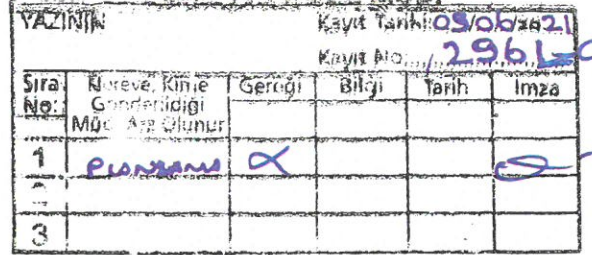 YAZININ Kayıt Tarihi: 09/06/2021
Kayıt No: 2961
Sıra No: Nereye, Kime Gönderildiği Müd. Arz Olunur Gereği Bilgi Tarih İmza
1 PLANLAMA
2
3